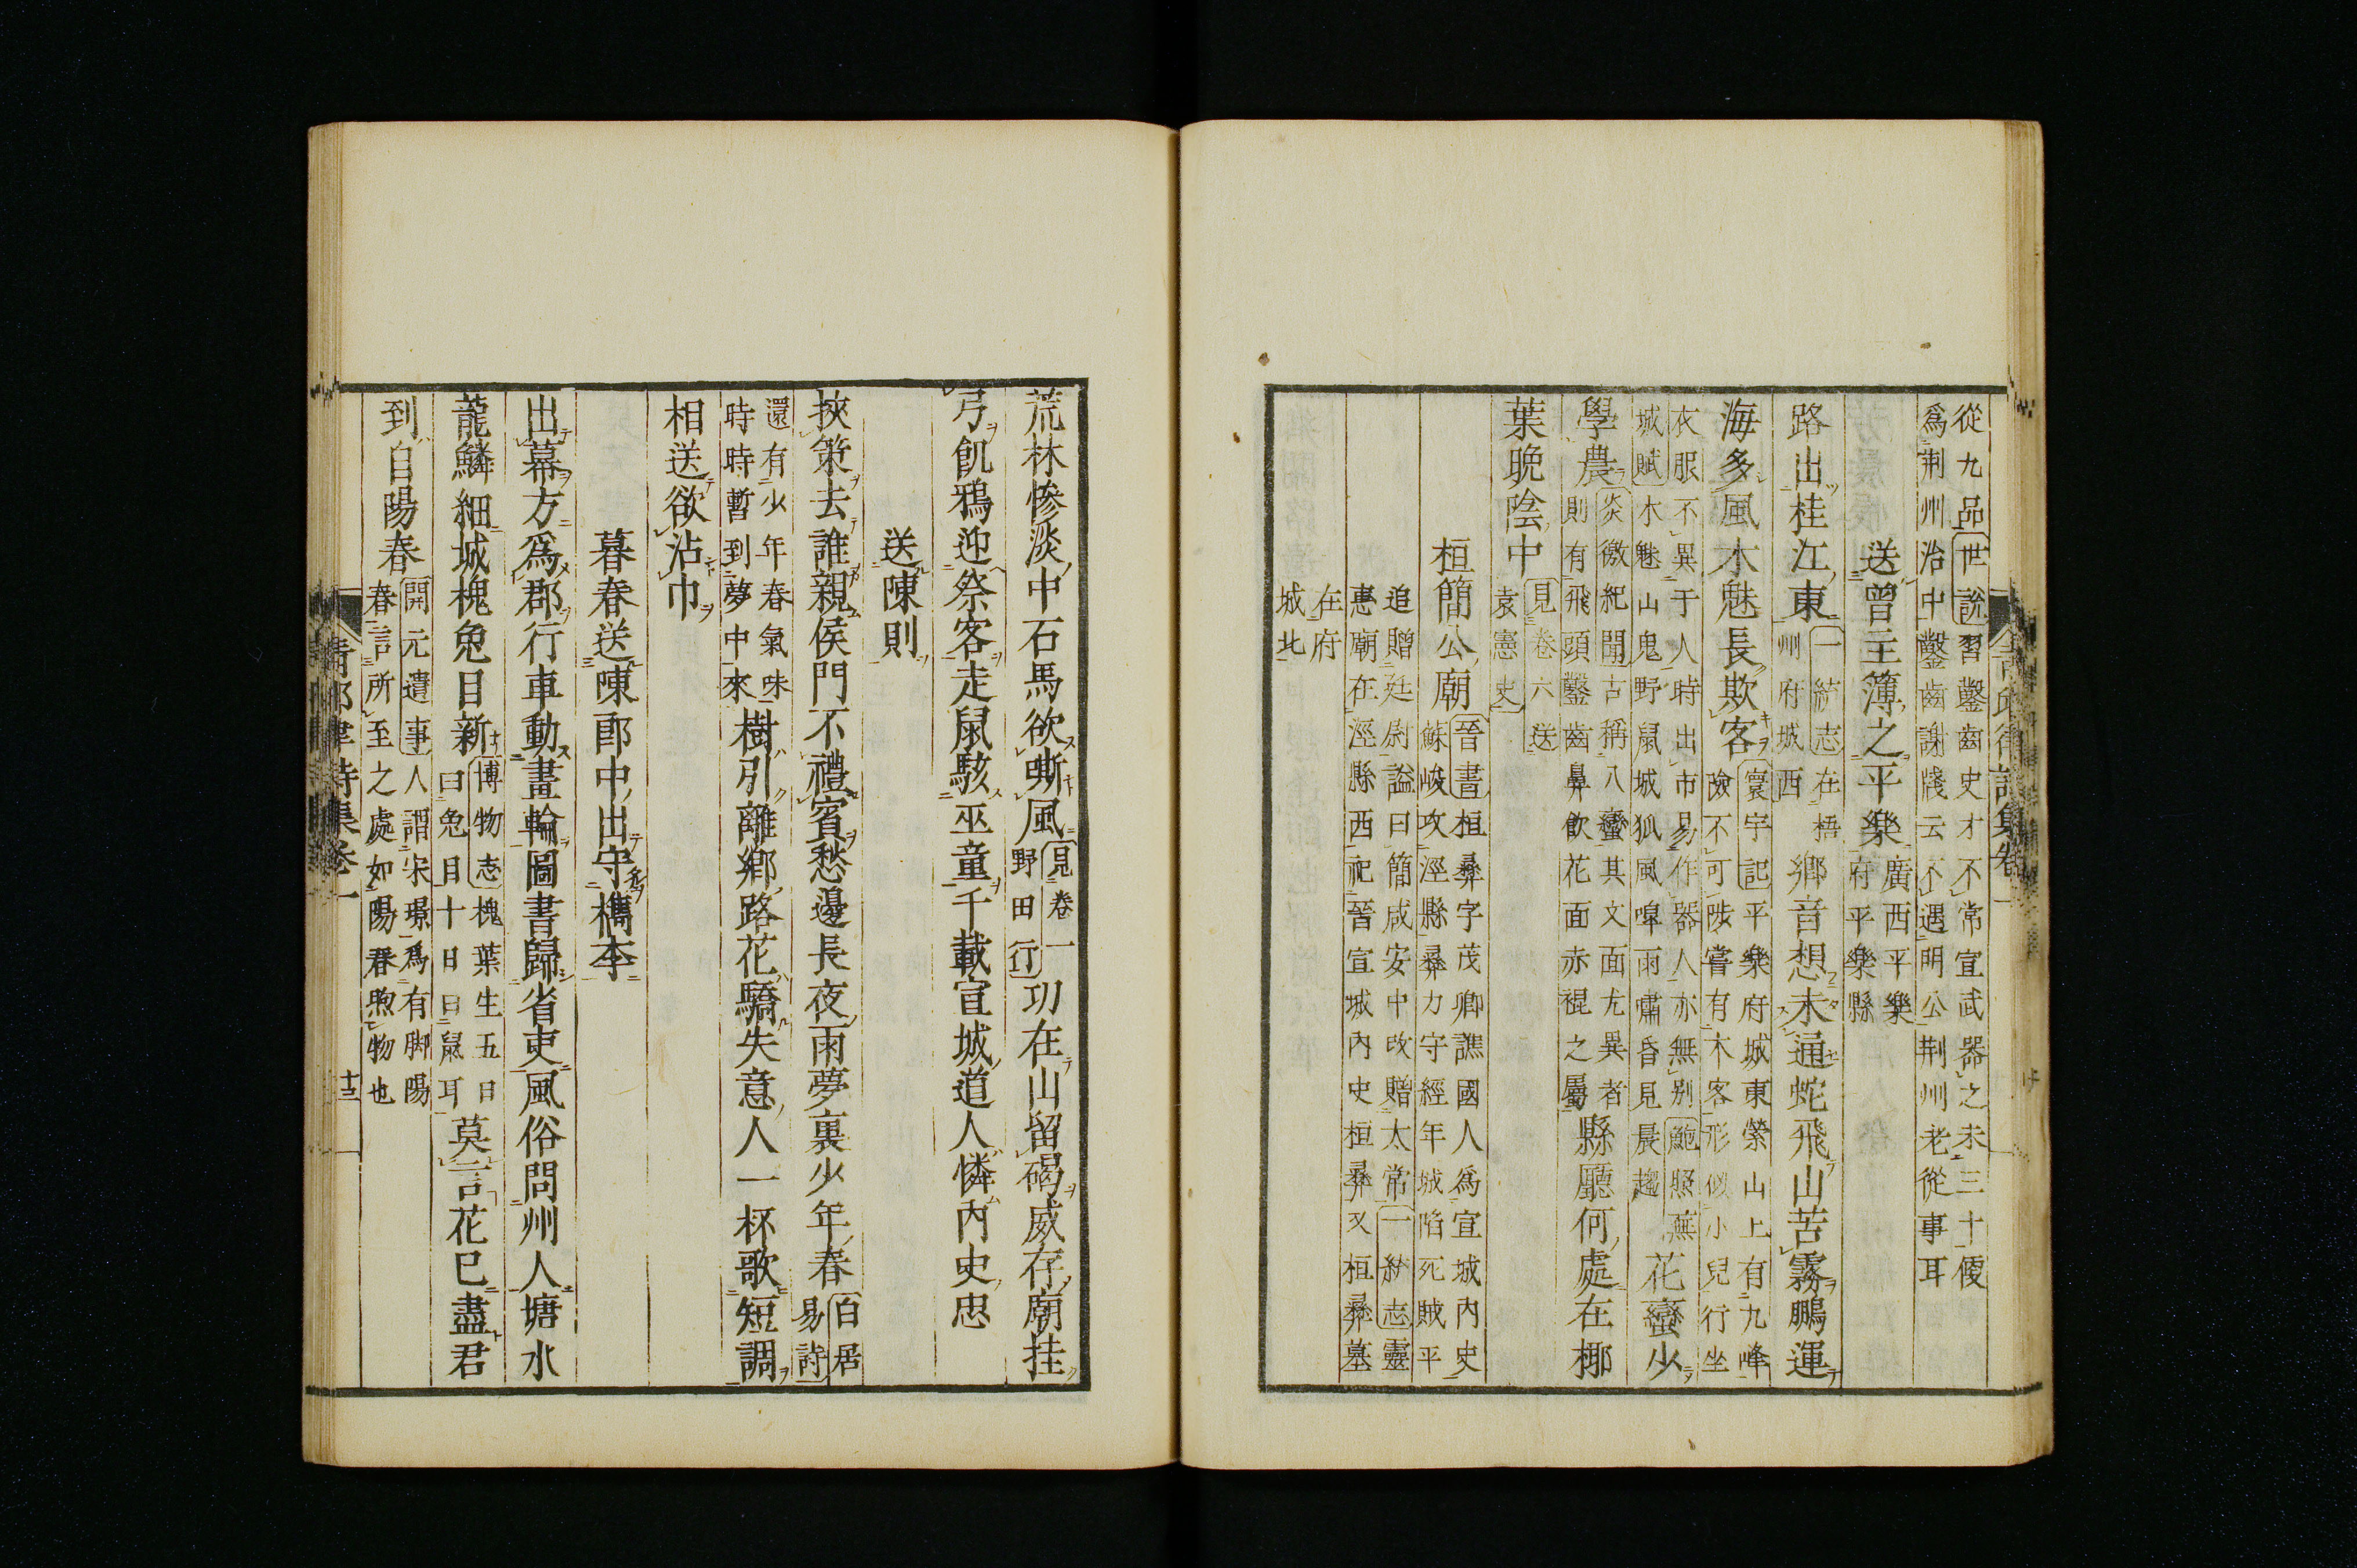 從九品世說習鑿齒史才不常宣武器之未三十便
爲荆州治中鑿齒謝牋云不遇明公荆州老從事耳
送曾主簿之平樂廣西平樂
府平樂縣
路出桂江東一統志在梧
州府城西鄉音想未通蛇飛山苦霧鵬運
海多風木魅長欺客寰宇記平樂府城東榮山上有九峰
險不可陟嘗有木客形似小兒行坐
衣服不異于人時出市易作器人亦無别鮑照蕪
城賦木魅山鬼野鼠城狐風嘷雨嘯昏見晨趨花蠻少
學農炎徼紀聞古稱八蠻其文面尤異者
則有飛頭鑿齒鼻飮花面赤裩之屬縣廳何處在椰
葉晩陰中見卷六送
袁憲史
桓簡公廟晉書桓彝字茂卿譙國人爲宣城内史
蘇峻攻涇縣彝力守經年城陷死賊平
追贈廷尉謚曰簡咸安中改贈太常一統志靈
惠廟在涇縣西祀晉宣城内史桓彝又桓彝墓
在府
城北
荒林慘淡中石馬欲嘶風見卷一
野田行功在山留碣威存廟挂
弓飢鴉迎祭客走鼠駭巫童千載宣城道人憐内史忠
送陳則
挾策去誰親侯門不禮賓愁邊長夜雨夢裏少年春白居
易詩
還有少年春氣味
時時暫到夢中來樹引離鄉路花驕失意人一杯歌短調
相送欲沾巾
暮春送陳郎中出守檇李
出幕方爲郡行車動畫輪圖書歸省吏風俗問州人塘水
龍鱗細城槐兔目新博物志槐葉生五日
曰兔目十日曰鼠耳莫言花已盡君
到自陽春開元遺事人謂宋璟爲有脚陽
春言所至之處如陽春煦物也
青邱律詩集卷一
十三